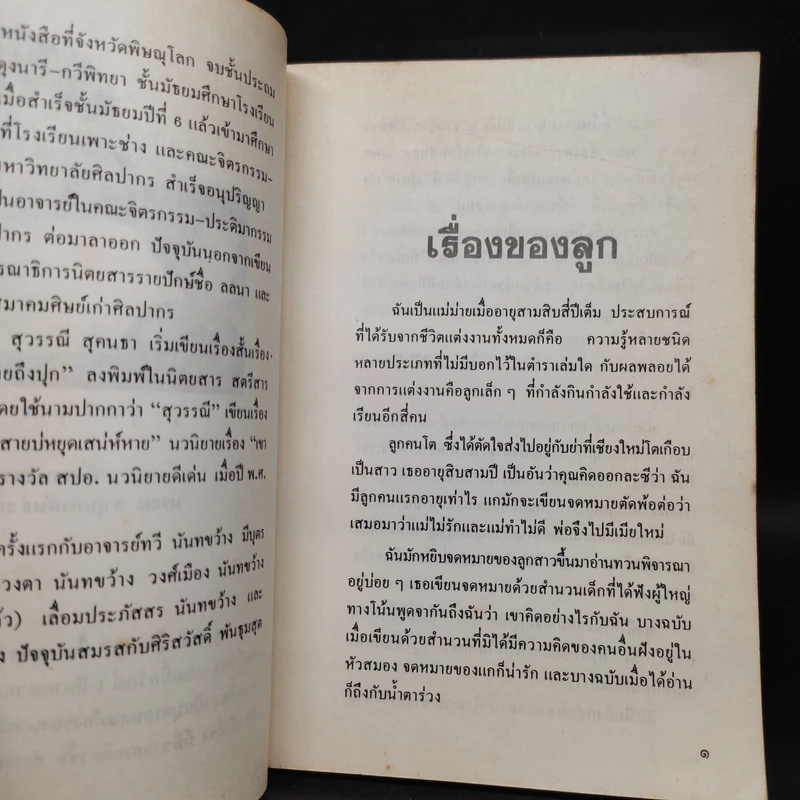 หนังสือที่จังหวัดพิษณุโลก จบชั้นประถม
ดุงนารี-กวีพิทยา ชั้นมัธยมศึกษาโรงเรียน
เมื่อสำเร็จชั้นมัธยมปีที่ 6 แล้วเข้ามาศึกษา
ที่โรงเรียนเพาะช่าง และคณะจิตรกรรม-
มหาวิทยาลัยศิลปากร สำเร็จอนุปริญญา
ป็นอาจารย์ในคณะจิตรกรรม-ประติมากรรม
ปากร ต่อมาลาออก ปัจจุบันนอกจากเขียน
รณาธิการนิตยสารรายปักษ์ชื่อ ลลนา และ
สมาคมศิษย์เก่าศิลปากร
สุวรรณี สุคนธา เริ่มเขียนเรื่องสั้นเรื่อง
ยถึงปุก” ลงพิมพ์ในนิตยสาร สตรีสาร
ดยใช้นามปากกาว่า “สุวรรณี” เขียนเรื่อง
สายบ่หยุดเสน่ห์หาย” นวนิยายเรื่อง “เขา
รางวัล สปอ. นวนิยายดีเด่น เมื่อปี พ.ศ.
ครั้งแรกกับอาจารย์ทวี นันทขว้าง มีบุตร
วงตา นันทขว้าง วงศ์เมือง นันทขว้าง
ว) เลื่อมประภัสสร นันทขว้าง และ
ง ปัจจุบันสมรสกับศิริสวัสดิ์ พันธุมสุต
เรื่องของลูก
ฉันเป็นแม่ม่ายเมื่ออายุสามสิบสี่ปีเต็ม ประสบการณ์
ที่ได้รับจากชีวิตแต่งงานทั้งหมดก็คือ ความรู้หลายชนิด
หลายประเภทที่ไม่มีบอกไว้ในตำราเล่มใด กับผลพลอยได้
จากการแต่งงานคือลูกเล็ก ๆ ที่กำลังกินกำลังใช้และกำลัง
เรียนอีกสี่คน
ลูกคนโต ซึ่งได้ตัดใจส่งไปอยู่กับย่าที่เชียงใหม่โตเกือบ
เป็นสาว เธออายุสิบสามปี เป็นอันว่าคุณคิดออกละซีว่า ฉัน
มีลูกคนแรกอายุเท่าไร แกมักจะเขียนจดหมายตัดพ้อต่อว่า
เสมอมาว่าแม่ไม่รักและแม่ทำไม่ดี พ่อจึงไปมีเมียใหม่
ฉันมักหยิบจดหมายของลูกสาวขึ้นมาอ่านทวนพิจารณา
อยู่บ่อย ๆ เธอเขียนจดหมายด้วยสำนวนเด็กที่ได้ฟังผู้ใหญ่
ทางโน้นพูดจากันถึงฉันว่า เขาคิดอย่างไรกับฉัน บางฉบับ
เมื่อเขียนด้วยสำนวนที่มิได้มีความคิดของคนอื่นฝังอยู่ใน
หัวสมอง จดหมายของแกก็น่ารัก และบางฉบับเมื่อได้อ่าน
ก็ถึงกับน้ำตาร่วง
๑